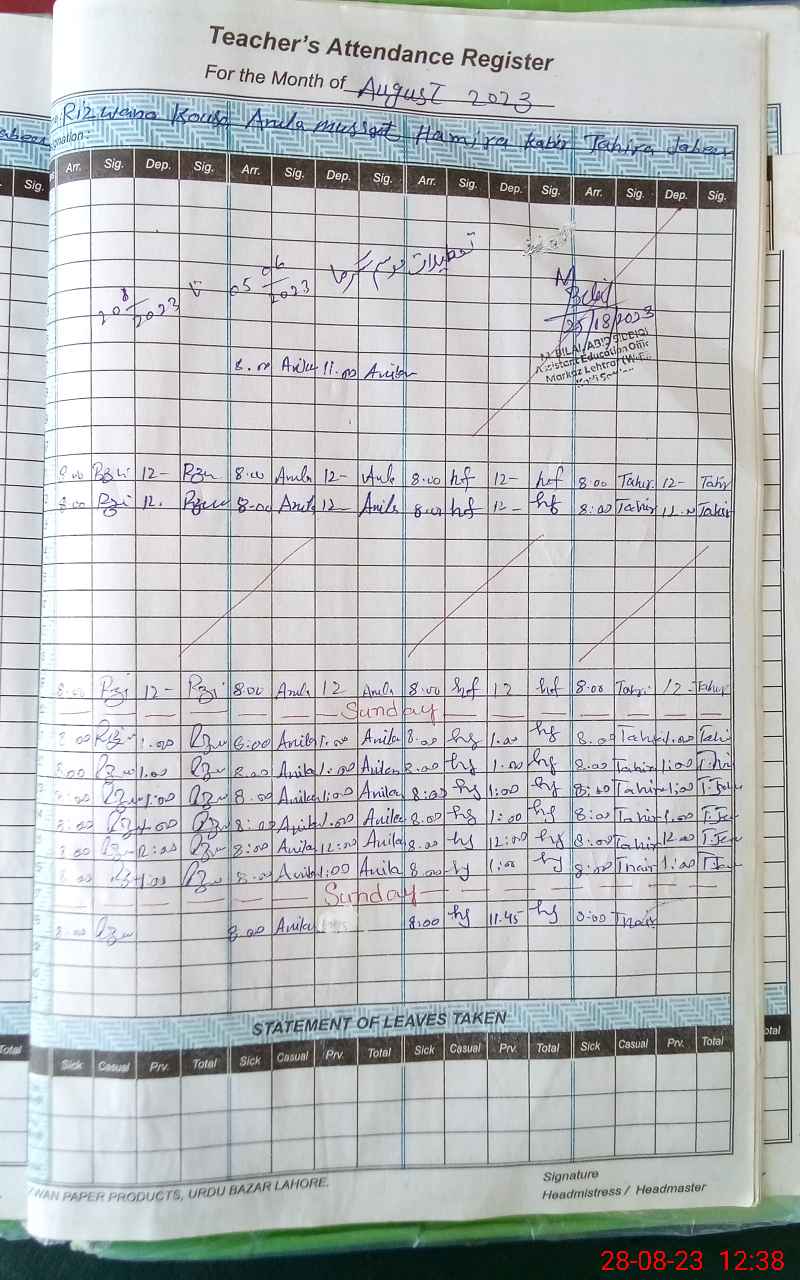 Teacher's Attendance Register
For the Month of August 2023
Rizwana Kousa Anila mussart Hamira Kabir Tahira Jabeen
Arr. Sig. Dep. Sig. Arr. Sig. Dep. Sig. Arr. Sig. Dep. Sig. Arr. Sig. Dep. Sig.
تعطیلات موسم گرما
05 06/2023 تا 20 8/2023
25/18/2023
M BILAL ABID SIDDIQI
Assistant Education Officer
Markaz Lehtrar (W-E
8.00 Anila 11.00 Anila
8.00 Rzi 12- Rzu 8.00 Anila 12- Anila 8.00 hf 12- hf 8:00 Tahir 12- Tahir
8.00 Rzi 12. Rzu 8-00 Anila 12- Anila 8.00 hf 12- hf 8:00 Tahir 12.00 Tahir
8.00 Rzi 12- Rzi 8:00 Anila 12 Anila 8.00 hf 12 hf 8.00 Tahir 12- Tahir
Sunday
8.00 Rzu 1.00 Rzu 8:00 Anila 1.00 Anila 8.00 hf 1.00 hf 8.00 Tahir 1.00
8.00 Rzu 1.00 Rzu 8.00 Anila 1:00 Anila 8.00 hf 1.00 hf 8:00 Tahir 1:00
8:00 Rzu 1:00 Rzu 8.00 Anila 1:00 Anila 8:00 hf 1:00 hf 8:00 Tahir 1:00 T.Jeb
8:00 Rzu 1.00 Rzu 8:00 Anila 1.00 Anila 8.00 hf 1:00 hf 8:00 Tahir 1.00 T.Jeb
8:00 Rzu 12:00 Rzu 8:00 Anila 12:00 Anila 8.00 hf 12:00 hf 8:00 Tahir 12.00 T.Jeb
8:00 Rzu 1.00 Rzu 8.00 Anila 1:00 Anila 8.00 hf 1:00 hf 8:00 Tahir 1:00 T.Jeb
Sunday
8:00 Rzu 8.00 Anila 8:00 hf 11.45 hf 8:00 Tahir
STATEMENT OF LEAVES TAKEN
Sick Casual Prv. Total Sick Casual Prv. Total Sick Casual Prv. Total Sick Casual Prv. Total
WAN PAPER PRODUCTS, URDU BAZAR LAHORE.
Signature
Headmistress / Headmaster
28-08-23 12:38